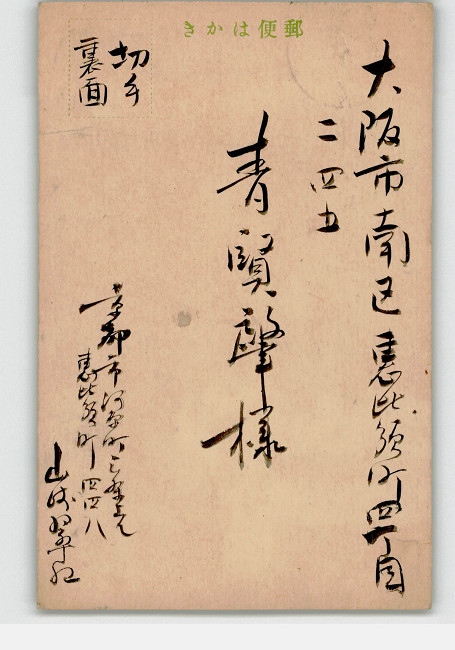 郵便はかき
大阪市南区恵比須町四丁目
二四五
青賢肇様
切手
裏面
京都市河原町三条上ル
恵比須町四四八
山崎翠紅